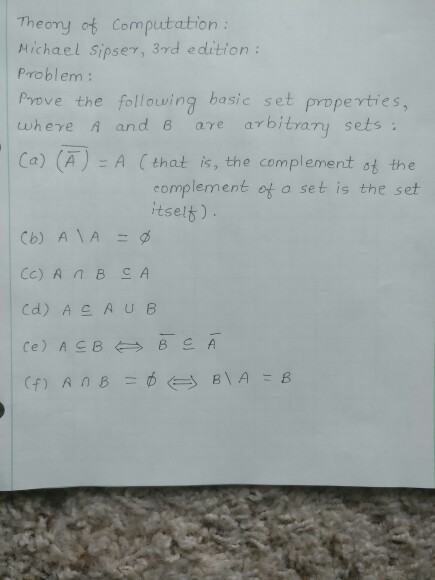 Theory of Computation:
Michael Sipser, 3rd edition:
Problem:
Prove the following basic set properties,
where A and B are arbitrary sets:
(a) (A̿) = A (that is, the complement of the
complement of a set is the set
itself).
(b) A \ A = ∅
(c) A ∩ B ⊆ A
(d) A ⊆ A ∪ B
(e) A ⊆ B ⟺ B̅ ⊆ A̅
(f) A ∩ B = ∅ ⟺ B \ A = B